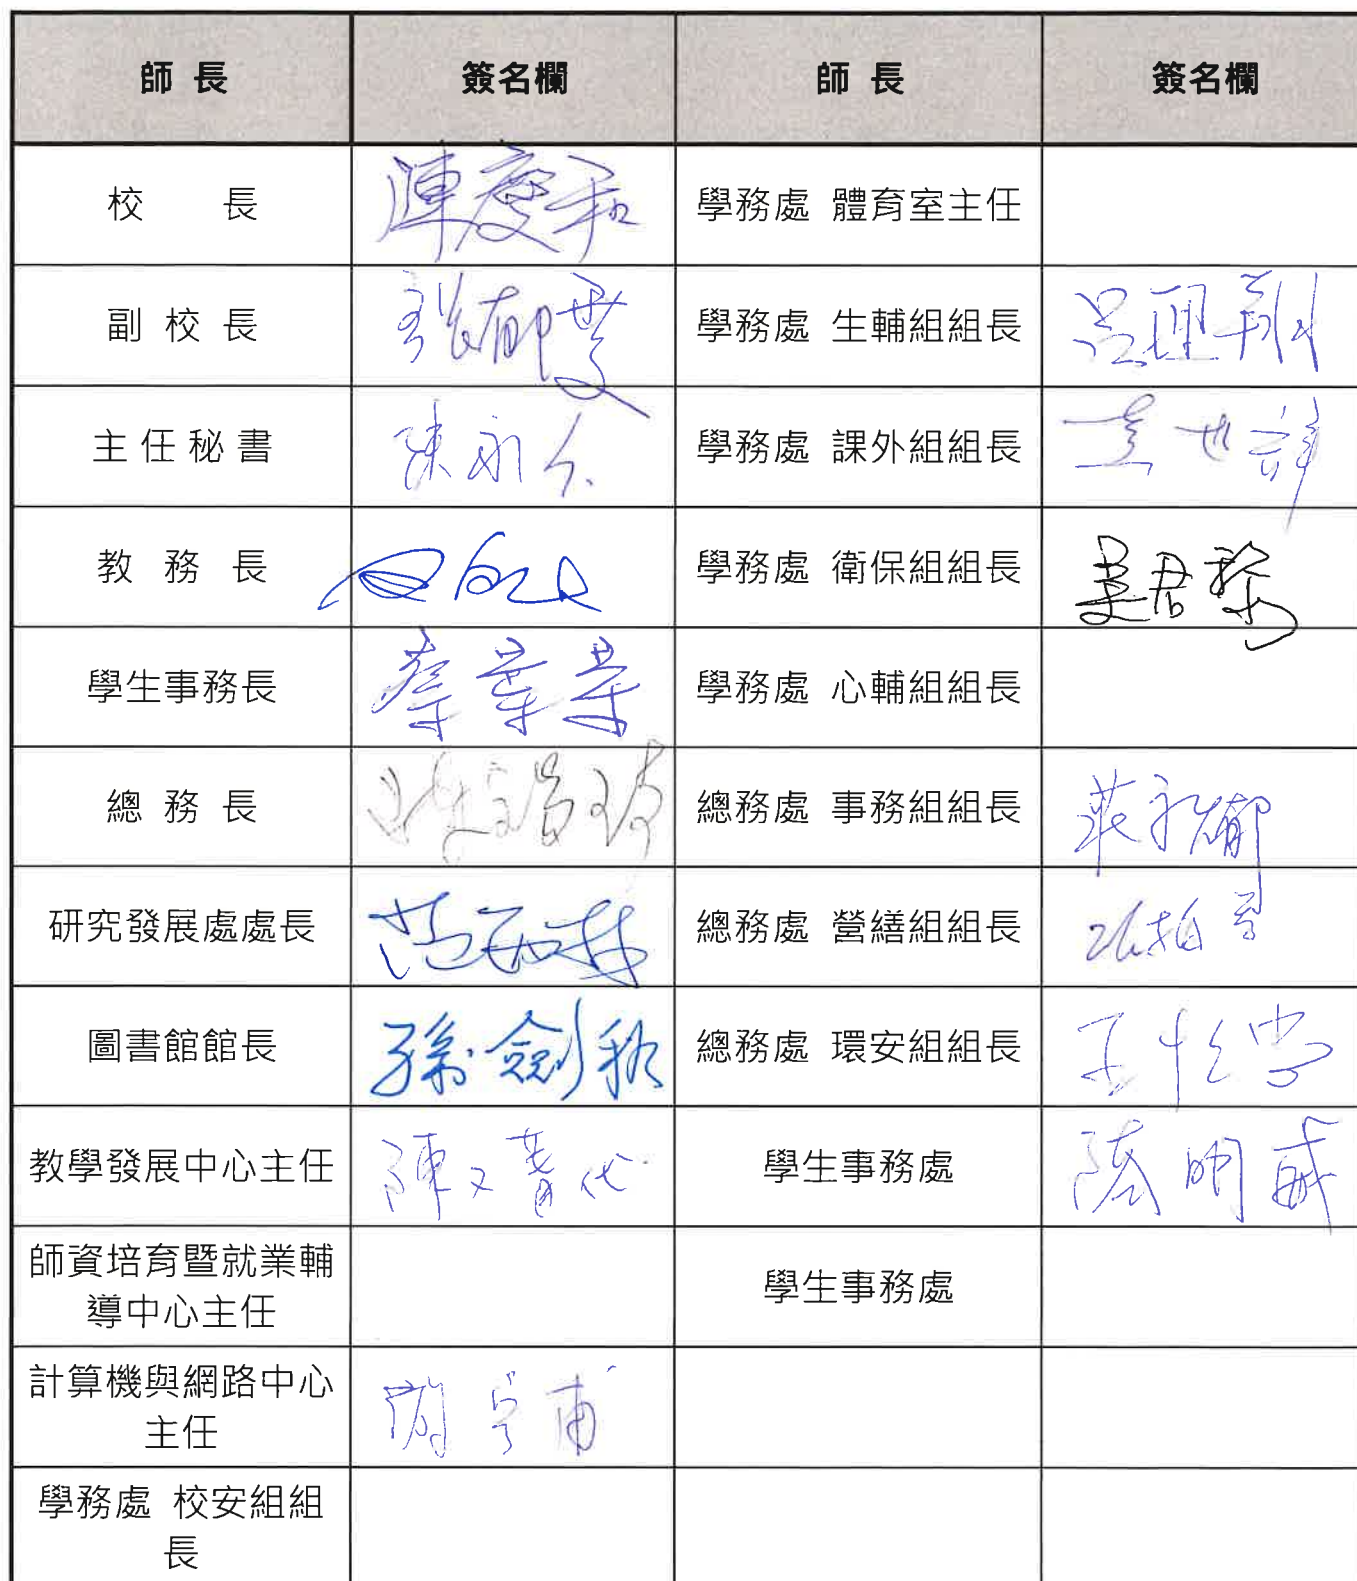 師 長 簽名欄 師 長 簽名欄
校 長 陳慶和 學務處 體育室主任
副 校 長 張郁雯 學務處 生輔組組長 呂理翔
主 任 秘 書 陳永仁 學務處 課外組組長
教 務 長 學務處 衛保組組長
學生事務長 蔡葉榮 學務處 心輔組組長
總 務 長 總務處 事務組組長 莊永郁
研究發展處處長 范丙林 總務處 營繕組組長
圖書館館長 孫劍秋 總務處 環安組組長
教學發展中心主任 陳文 學生事務處
師資培育暨就業輔
導中心主任
學生事務處
計算機與網路中心
主任
學務處 校安組組
長